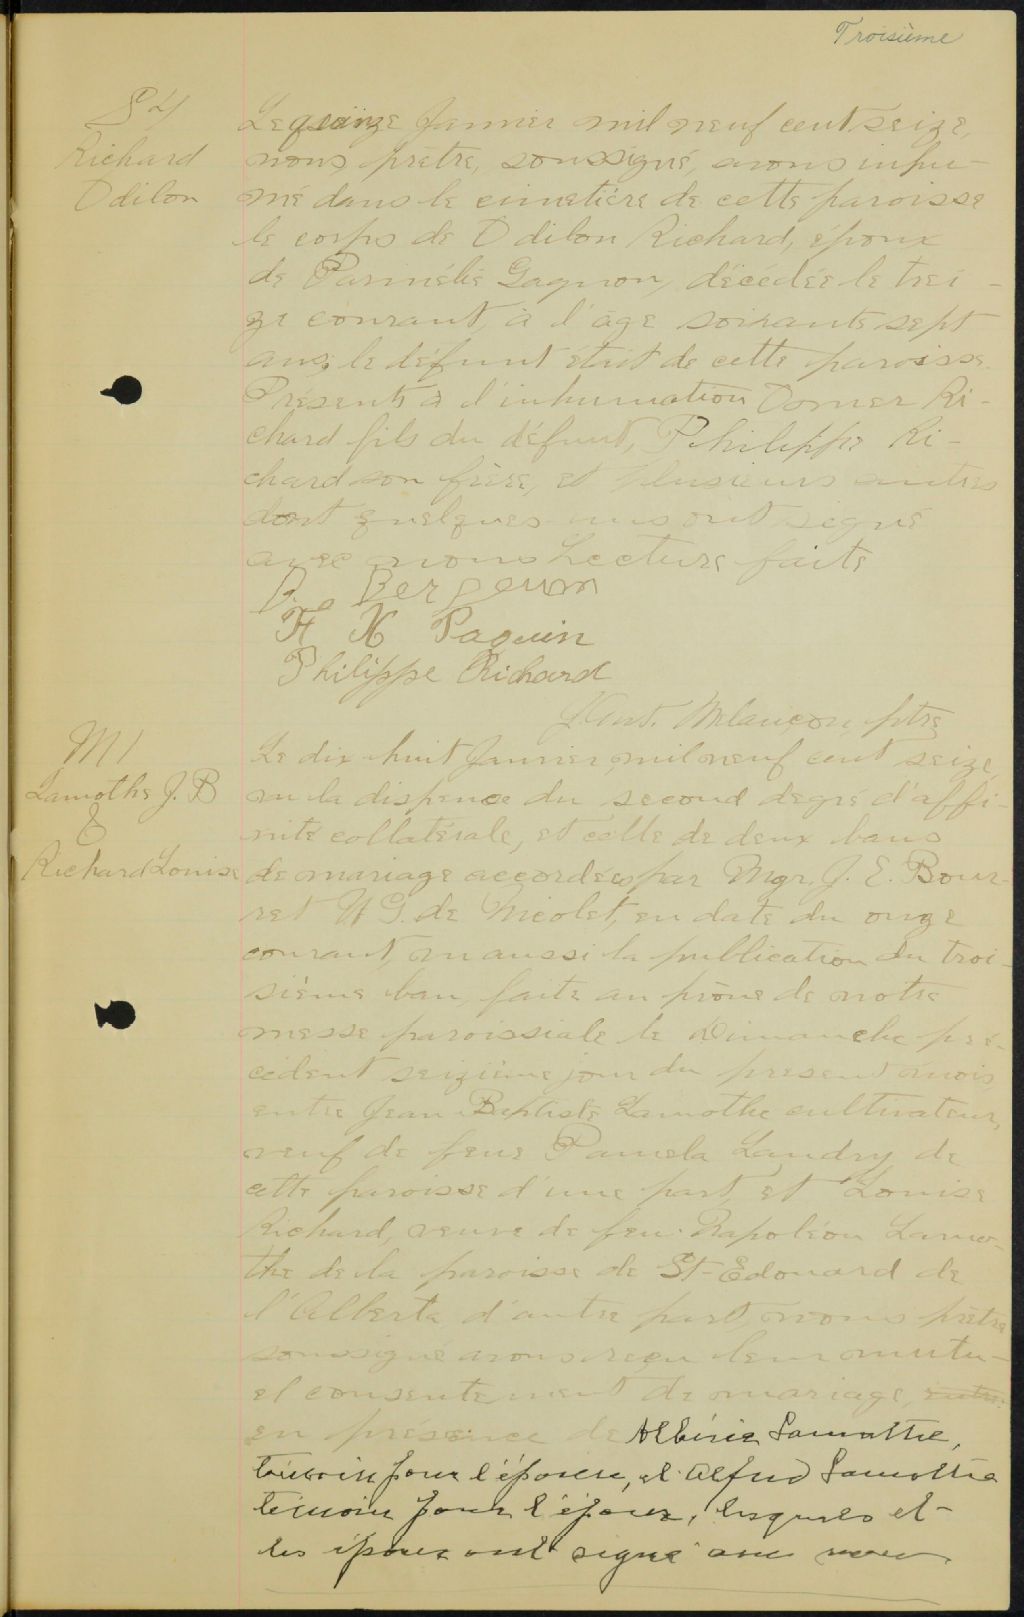 Troisième
S 4
Richard
Odilon
Le quinze Janvier mil neuf cent seize,
nous prêtre, soussigné, avons inhu-
mé dans le cimetière de cette paroisse
le corps de Odilon Richard, époux
de Parmélie Gagnon, décédée le trei-
ze courant, à l'âge soixante sept
ans, le défunt était de cette paroisse.
Présents à l'inhumation Domer Ri-
chard fils du défunt, Philippe Ri-
chard son frère, et plusieurs autres
dont quelques-uns ont signé
avec nous Lecture faite
D. Bergeron
H Paquin
Philippe Richard
Melançon, ptre
M 1
Lamothe J. B
&
Richard Louise
Le dix huit Janvier, mil neuf cent seize,
vu la dispence du second degré d'affi-
nité collatérale, et celle de deux bans
de mariage accordées par Mgr. J. E. Bour-
ret V G. de Nicolet, en date du onze
courant, vu aussi la publication du troi-
sième ban, faite au prône de notre
messe paroissiale le Dimanche pré-
cédent seizième jour du present mois
entre Jean Baptiste Lamothe cultivateur,
veuf de feue Pamela Landry de
cette paroisse d'une part, et Louise
Richard, veuve de feu Napoléon Lamo-
the de la paroisse de St-Edouard de
l'Alberta, d'autre part, nous prêtre
soussigné avons reçu leur mutu-
el consentement de mariage,
en présence de Albéric Lamothe,
témoin pour l'épouse, et Alfred Lamothe
témoin pour l'époux, lesquels et
les époux ont signé avec nous.